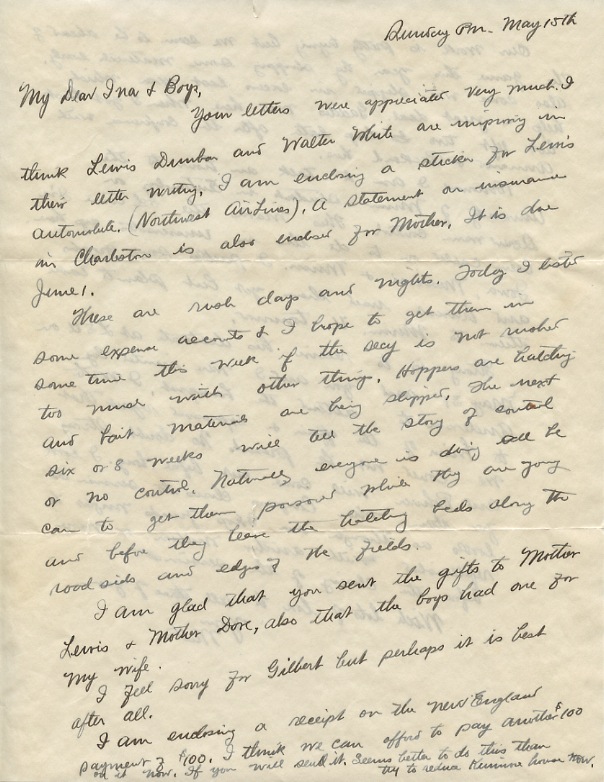 Sunday Pm. May 15th
My Dear Ina & Boys,
Your letters were appreciated very much. I
think Lewis Dunbar and Walter White are improving in
their letter writing. I am enclosing a sticker for Lewis
automobile. (Northwest AirLines). A statement on insurance
in Charleston is also enclosed for Mother. It is due
June 1.
These are rush days and nights. Today I
some expense accounts & I hope to get them in
some time this week if the secy is not rushed
too much with other things. Hoppers are hatching
and bait materials are being shipped. The next
six or 8 weeks will tell the story of control
or no control. Naturally everyone is doing all he
can to get them poisoned while they are young
and before they leave the hatching beds along the
road sides and edges of the fields.
I am glad that you sent the gifts to Mother
Lewis & Mother Dore, also that the boys had one for
My wife.
I feel sorry for Gilbert but perhaps it is best
after all.
I am enclosing a receipt on the New England
payment of $100. I think we can afford to pay another $100
on it now. If you will send it. Seems better to do this than
try to reduce house now.